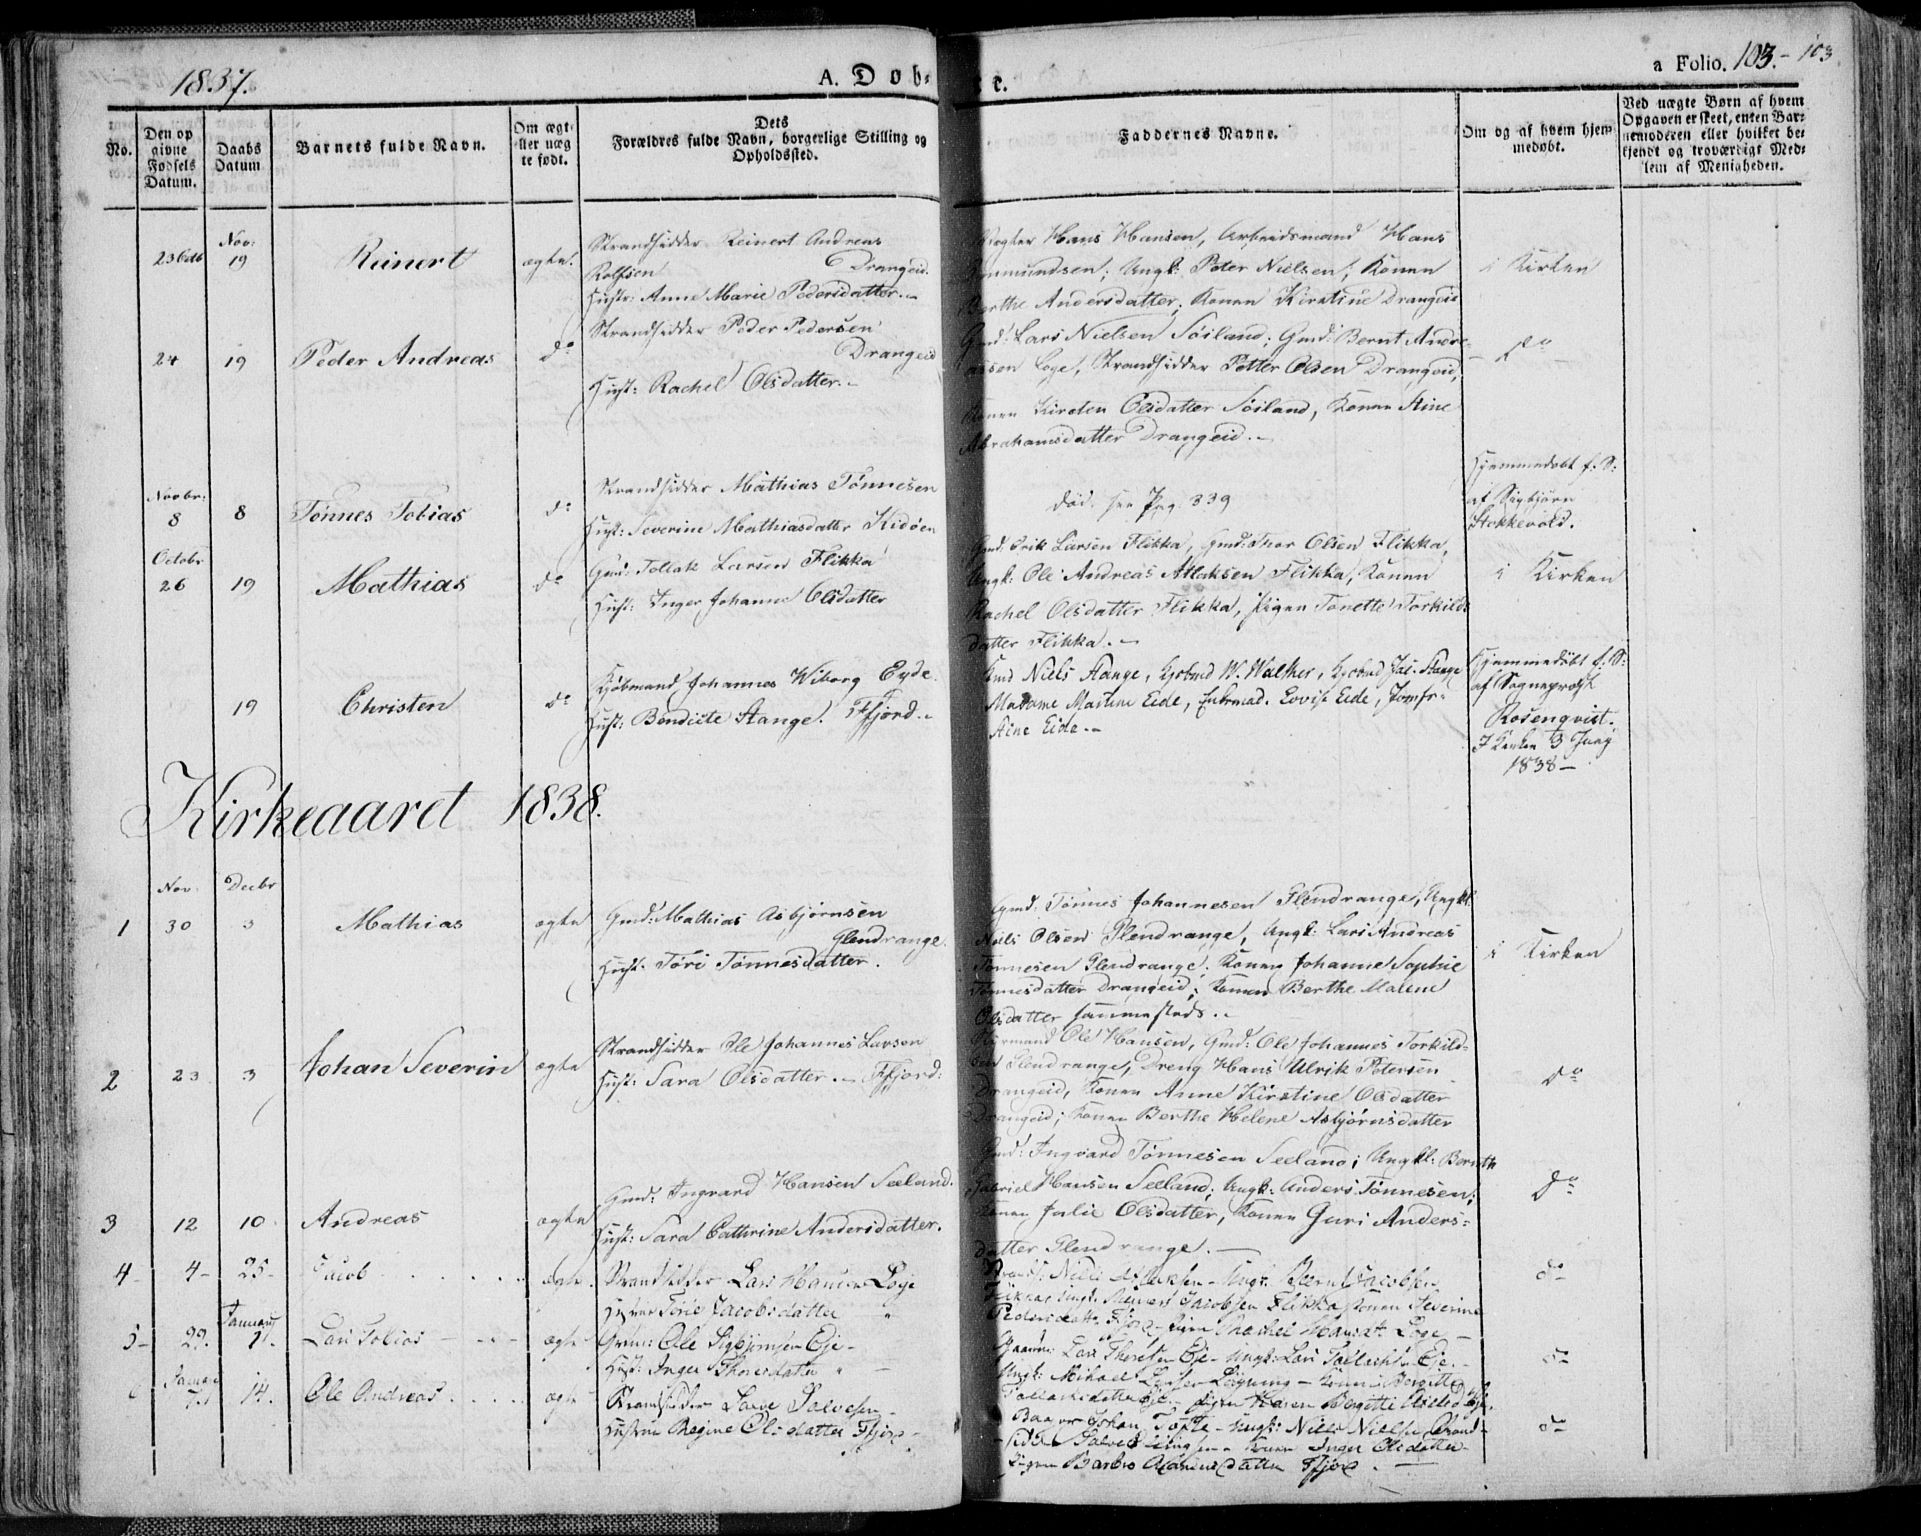 1837.
A. Dobte.
a Folio. 103. - 103
No.
Den opgivne Fødsels Datum.
Daabs Datum
Barnets fulde Navn.
Om ægte eller uægte født.
Dets Forældres fulde Navn, borgerlige Stilling og Opholdssted.
Faddernes Navne.
Om og af hvem hjemmedøbt.
Ved uægte Børn af hvem Opgaven er skeet, enten Barnemoderen eller hvilket bekjendt og troværdigt Medlem af Menigheden.
23 Octb
Nov: 19
Reinert
ægte.
Strandsidder Reinert Andreas
Rolfsen Drangeid.
Hustr: Anne Marie Pedersdatter.
Hans Hansen, Arbeidsmand Hans
Ungk: Peter Nielsen, Konen
Berthe Andersdatter; Konen Kirstine Drangeid
i Kirken
24
19
Peder Andreas
do
Strandsidder Peder Pedersen
Drangeid
Hust: Rachel Olsdatter.
Gmd: Lars Nielsen Søiland; Gmd: Bernt Andre-
assen Loge, Strandsidder Petter Olsen Drangeid,
Konen Kirsten Olsdatter Søiland, Konen Stine
Abrahamsdatter Drangeid.
do
Novbr: 8
8
Tønnes Tobias
do
Strandsidder Mathias Tønnesen
Hust: Severine Mathiasdatter Kidøen
død. see Pag. 339
Hjemmedøbt f: S:
af Sigbjørn
Stokkevold.
Octobr 26
19
Mathias
do
Gmd: Tollak Larsen Flikka
Hust: Inger Johanne Olsdatter
Gmd: Erik Larsen Flikka, Gmd: Thor Olsen Flikka,
Ungk: Ole Andreas Atlaksen Flikka, Konen
Rachel Olsdatter Flikka, Pigen Tonette Torkilds
datter Flikka.
i Kirken
19
Christen
do
Kjøbmand Johannes Wiborg Eyde.
Hust: Bendicte Stange. Ffjord.
Kmd Niels Stange, Kjøbmd W. Walther, Kjøbmd Jac. Stange
Madame Martine Eide, Lovise Eide, Jomfr:
Stine Eide.
Hjemmedøbt f: S:
af Sognepræst
Rosenqvist.
I Kirken 3 Juny
1838
Kirkeaaret 1838.
Nov. Decbr
1
30
3
Mathias
ægte
Gmd: Mathias Asbjørnsen
Glendrange.
Hust: Tøri Tønnesdatter.
Gmd: Tønnes Johannesen Glendrange, Ungkl:
Niels Olsen Glendrange, Ungk: Lars Andreas
Tønnesen Glendrange; Konen Johanne Sophie
Tønnesdatter Drangeid; Konen Berthe Malene
Olsdatter sammesteds.
i Kirken
2
23
3
Johan Severin
ægte
Strandsidder Ole Johannes Larsen
Hust: Sara Olsdatter. Ffjord:
Ole Hansen, Gmd: Ole Johannes Torkild-
sen Glendrange, Dreng Hans Ulrik Petersen
Drangeid, Konen Anne Kirstine Olsdatter
Drangeid; Konen Berthe Helene Asbjørnsdatter
do
3
12
10
Andreas
ægte
Gmd: Ingvard Hansen Seeland.
Hust: Sara Cathrine Andersdatter.
Gmd: Ingvard Tønnesen Seeland; Ungkl: Bernth
Gabriel Hansen Seeland; Ungk: Anders Tønnesen;
Konen Julie Olsdatter, Konen Guri Anders-
datter Glendrange.
do
4
4
25
Jacob
ægte
Strandsidder Lars Hansen Loge
Hustru Tørie Jacobsdatter "
Niels Atlaksen - Ungk: Bernt Jacobsen
Flikka, Ungk: Jacobsen Flikka, Konen Severine
Pedersdatt. Ffjord - Pigen Rachel Hansdt. Loge
do
5
29
January 1.
Lars Tobias
ægte
Grdm: Ole Sigbjørnsen Eje
Hust: Inger Thoresdatter "
Gaardm: Lars Thoresen Eje - Ungk: Lars Tollachsen Eje.
Ungk: Mikael Løyning - Konen Birgitte
Tollacksdatter Eje - Pigen Karen Birgitte Eje.
do
Januar
14.
Ole Andreas
ægte
Strandsidder Salvesen
Hustru Regine Olsdatter Ffjord
Johan Tofte - Ungk: Niels Nielsen Strand-
sidder Salve - Konen Inger Olsdatter
Pigen Barbro datter Ffjord.
do